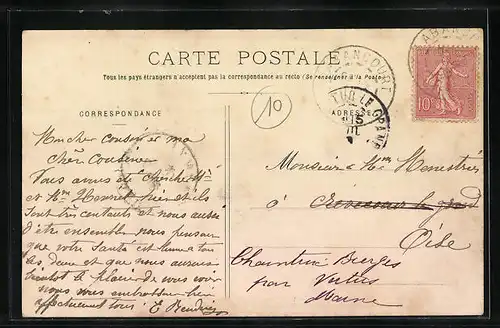 CARTE POSTALE
Tous les pays étrangers n'acceptent pas la correspondance au recto (Se renseigner à la Poste)
CORRESPONDANCE
ADRESSE
10
ABANCOURT
LE GRAND
10
Mon cher cousin et ma
chère Cousine
Vous avez dé
et Mme et ils
sont très contents et nous aussi
d'être ensemble nous pensons
que votre santé est bonne à tous
les deux et que nous aurons
bientôt le plaisir de vous voir
nous vous embrassons bien
affectueusement tous
Monsieur & Mme Menestrier
à Crèvecoeur le grand
Oise
Chaintrix Bierges
par Vertus
Marne